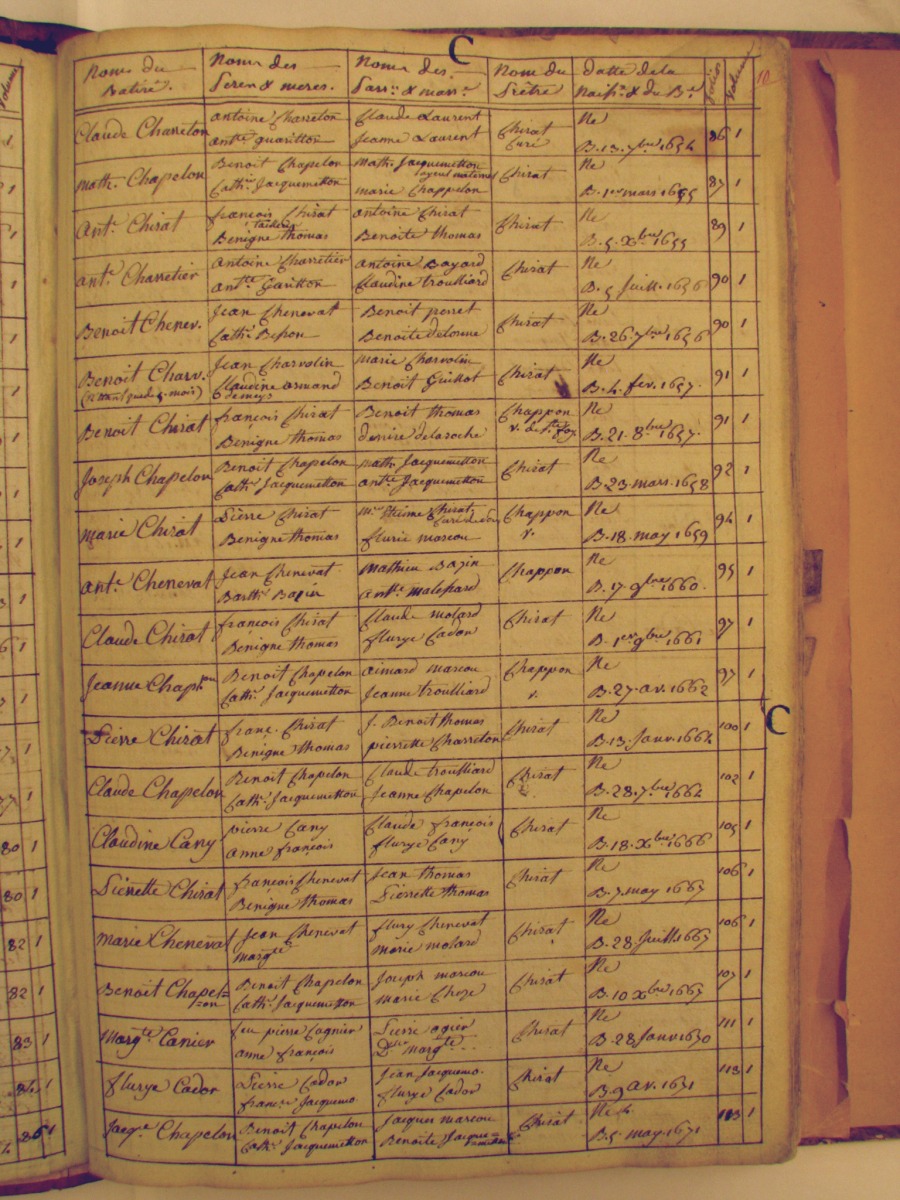 C
Noms du Batisé.
Noms des Peres & meres.
Noms des Parr.ns & marr.es
Nom du Prêtre
datte de la Naiss.e & du B.e
folio
Volume
10
Claude Charreton
antoine Charreton
ant.te guaritton
Claude Laurent
Jeanne Laurent
Chirat
Curé
Ne
B. 13. 7.bre 1654
86 1
math. Chapelon
Benoit Chapelon
Cath. Jacquemetton
math. Jacquemetton
ayeul maternel
marie Chappelon
Chirat
Ne
B. 1er mars 1655
87 1
Ant.e Chirat
françois Chirat
Benigne thomas
antoine Chirat
Benoite thomas
Chirat
Ne
B. 5. Xbre 1655
89 1
ant.e Charretier
Antoine Charretier
Ant.te Garitton
antoine Bayard
Claudine troulliard
Chirat
Ne
B. 5 Juill. 1656
90 1
Benoit Chenev.
Jean Chenevat
Cath.
Benoit perret
Benoite delorme
Chirat
Ne
B. 26. 7bre 1656
90 1
Benoit Charv.
Jean Charvolin
Claudine armand
demeys
marie Charvolin
Benoit Guillot
Chirat
Ne
B. 4. fev. 1657.
91 1
Benoit Chirat
françois Chirat
Benigne thomas
Benoit thomas
denise delaroche
Chappon
v. de Ste foy
Ne
B. 21. 8bre 1657.
91 1
Joseph Chapelon
Benoit Chapelon
Cath. Jacquemetton
math. Jacquemetton
ant.te Jacquemetton
Chirat
Ne
B. 23. mars. 1658
92 1
marie Chirat
Pierre Chirat
Benigne thomas
m.re Chirat
flurie marcou
Chappon
v.
Ne
B. 18. may 1659
94 1
ant.e Chenevat
Jean Chenevat
Barth. Bazin
mathieu Bazin
ant.te malchard
Chappon
Ne
B. 17. 9bre 1660.
95 1
Claude Chirat
françois Chirat
Benigne thomas
Claude molard
flurye Cador
Chirat
Ne
B. 1er 9bre 1661
97 1
Jeanne Chap.
Benoit Chapelon
Cath. Jacquemetton
aimard marcou
Jeanne troulliard
Chappon
v.
Ne
B. 27. av. 1662
97 1
Pierre Chirat
franç. Chirat
Benigne thomas
J. Benoit thomas
pierrette Charreton
Chirat
Ne
B. 13. Janv. 1664
100 1
C
Claude Chapelon
Benoit Chapelon
Cath. Jacquemetton
Claude troulliard
Jeanne Chapelon
Chirat
Ne
B. 28. 7bre 1664
102 1
Claudine Cany
pierre Cany
anne françois
Claude françois
flurye Cany
Chirat
Ne
B. 18. Xbre 1666
105 1
Pierrette Chirat
françois Chenevat
Benigne thomas
Jean thomas
Pierrette thomas
Chirat
Ne
B. 7. may 1667
106 1
marie Chenevat
Jean Chenevat
marg.te
flury Chenevat
marie molard
Chirat
Ne
B. 28 Juill. 1667
106 1
Benoit Chapel=
=on
Benoit Chapelon
Cath. Jacquemetton
Joseph marcou
marie
Chirat
Ne
B. 10 Xbre 1667
107 1
Marg.te Canier
feu pierre Cagnier
anne françois
Pierre ogier
D.lle marg.te ...
Chirat
Ne
B. 28 Janv. 1670
111 1
flurye Cador
Pierre Cador
franc.se Jacquemo
Jean Jacquemo.
flurye Cador
Chirat
Ne
B. 9 av. 1671
113 1
Jacq.e Chapelon
Benoit Chapelon
Cath. Jacquemetton
Jacques marcou
Benoite
Chirat
Ne
B. 5. may. 1671
113 1